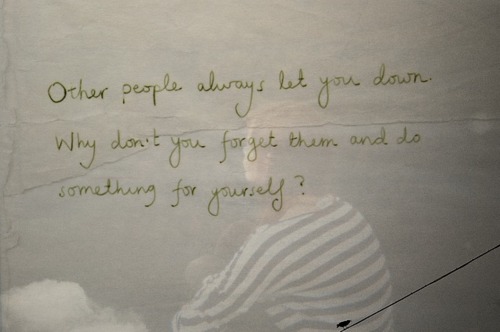 Other people always let you down.
Why don't you forget them and do
something for yourself?